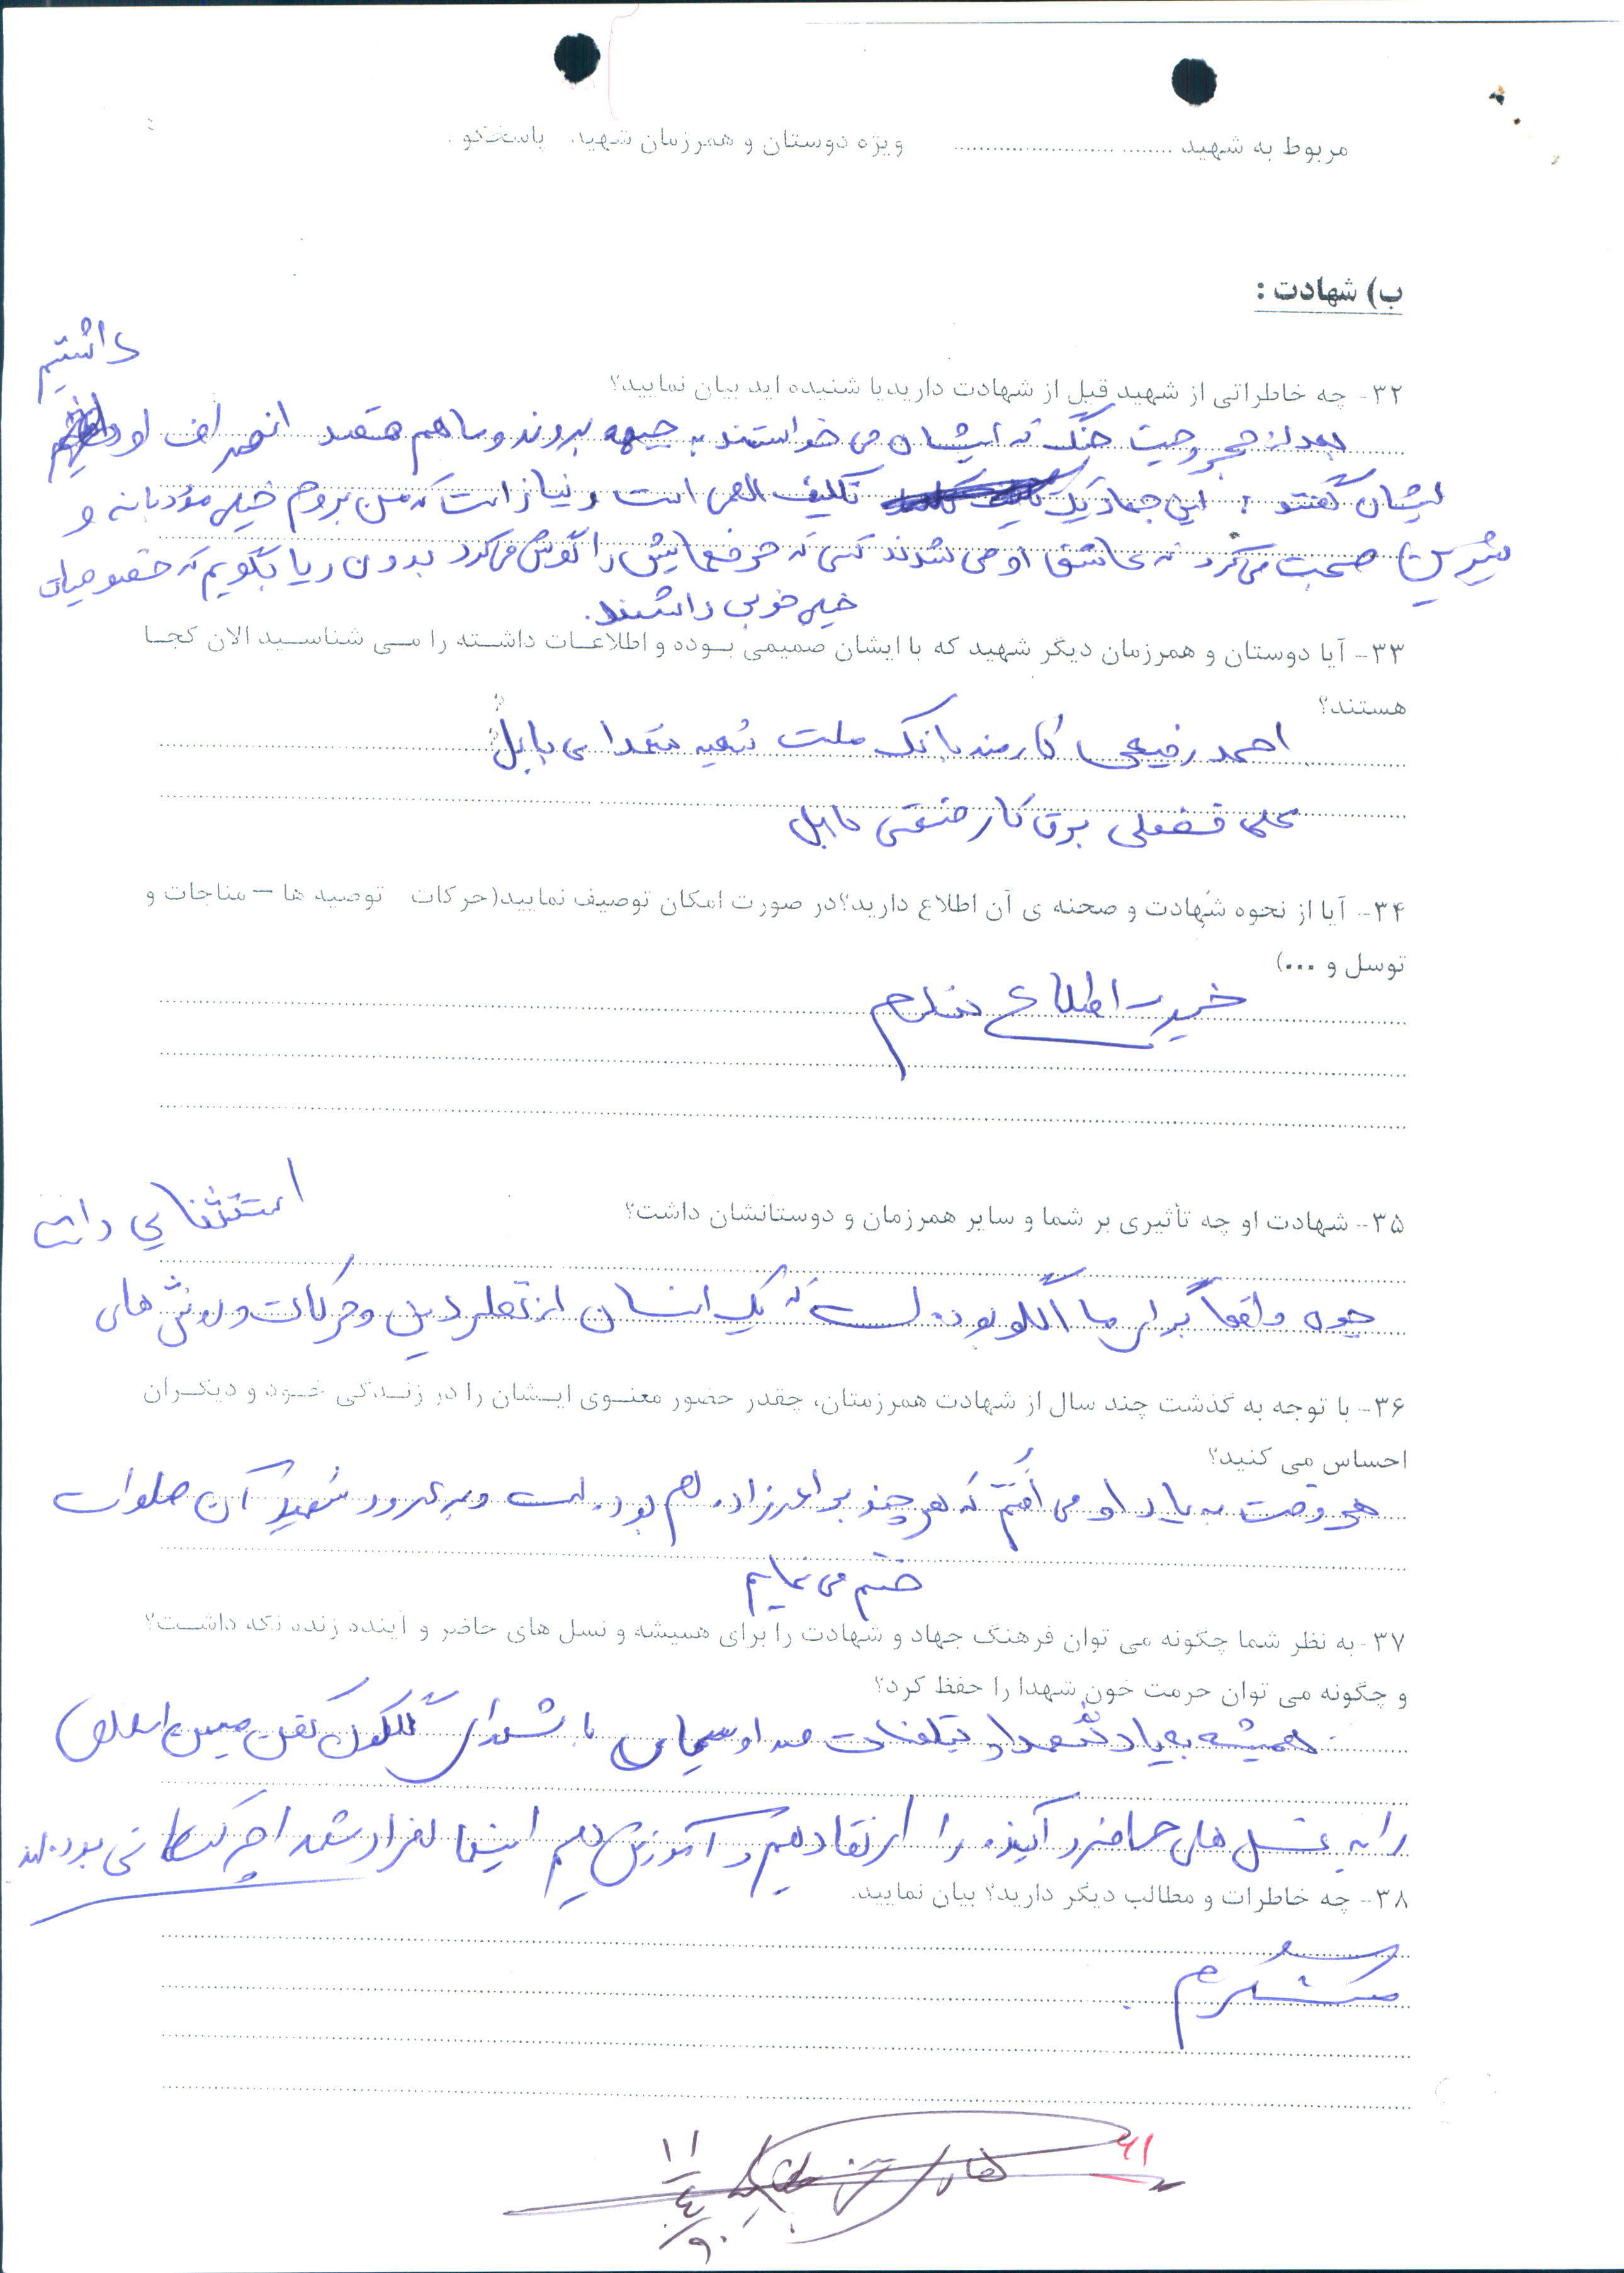 مربوط به شهید ........ ........................ ویژه دوستان و همرزمان شهید، پاسخگو :
ب) شهادت :
داشتیم
۳۲- چه خاطراتی از شهید قبل از شهادت دارید یا شنیده اید بیان نمایید؟
بعد از مجروحیت جنگ که ایشان می خواستند به جبهه بروند و ما هم قصد انصراف او
ایشان گفتند : این جهاد یک تکلیف الهی است و نیاز است که من بروم خیلی مؤدبانه و
شیرین صحبت می کرد که عاشق او می شدند کسی که حرفهایش را گوش می کرد بدون ریا بگویم که خصوصیات
خیلی خوبی داشتند.
۳۳- آیا دوستان و همرزمان دیگر شهید که با ایشان صمیمی بوده و اطلاعات داشته را می شناسید الان کجا
هستند؟
احمد رفیعی کارمند بانک ملت شعبه بابل
علی برق کار صنعتی بابل
۳۴- آیا از نحوه شهادت و صحنه ی آن اطلاع دارید؟در صورت امکان توصیف نمایید(حرکات توصیه ها – مناجات و
توسل و ...)
خیر اطلاع ندارم
۳۵- شهادت او چه تأثیری بر شما و سایر همرزمان و دوستانشان داشت؟
استثنایی داشت
چون واقعاً برای ما الگو بوده است که یک انسان از نظر دین و حرکات و روش های
۳۶- با توجه به گذشت چند سال از شهادت همرزمتان، چقدر حضور معنوی ایشان را در زندگی خود و دیگران
احساس می کنید؟
هر وقت به یاد او می افتم که هر چند برادرزاده ام بوده است و بر آن صلوات
ختم می نمایم
۳۷- به نظر شما چگونه می توان فرهنگ جهاد و شهادت را برای همیشه و نسل های حاضر و آینده زنده نگه داشت؟
و چگونه می توان حرمت خون شهدا را حفظ کرد؟
همیشه به یاد شهدا و تبلیغات صدا و سیمای با شهدای گلگون کفن میهن اسلامی
را به نسل های حاضر و آینده را ارتقا دهیم و آموزش دهیم اینها افراد شهدا چه کسانی بوده اند
۳۸- چه خاطرات و مطالب دیگر دارید؟ بیان نمایید.
متشکرم
۶۱
۱۱
۴
۹۰